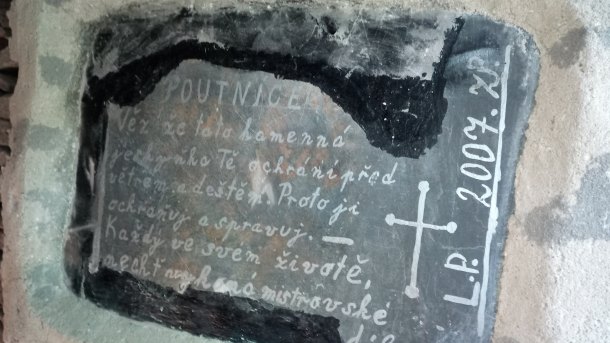 POUTNICE
Věz že tato kamenná
jeskyňka Tě ochrání před
větrem a deštěm. Proto ji
ochraňuj a spravuj. —
Každý ve svém životě,
nechť vykoná mistrovské
L.P. 2007. Z.